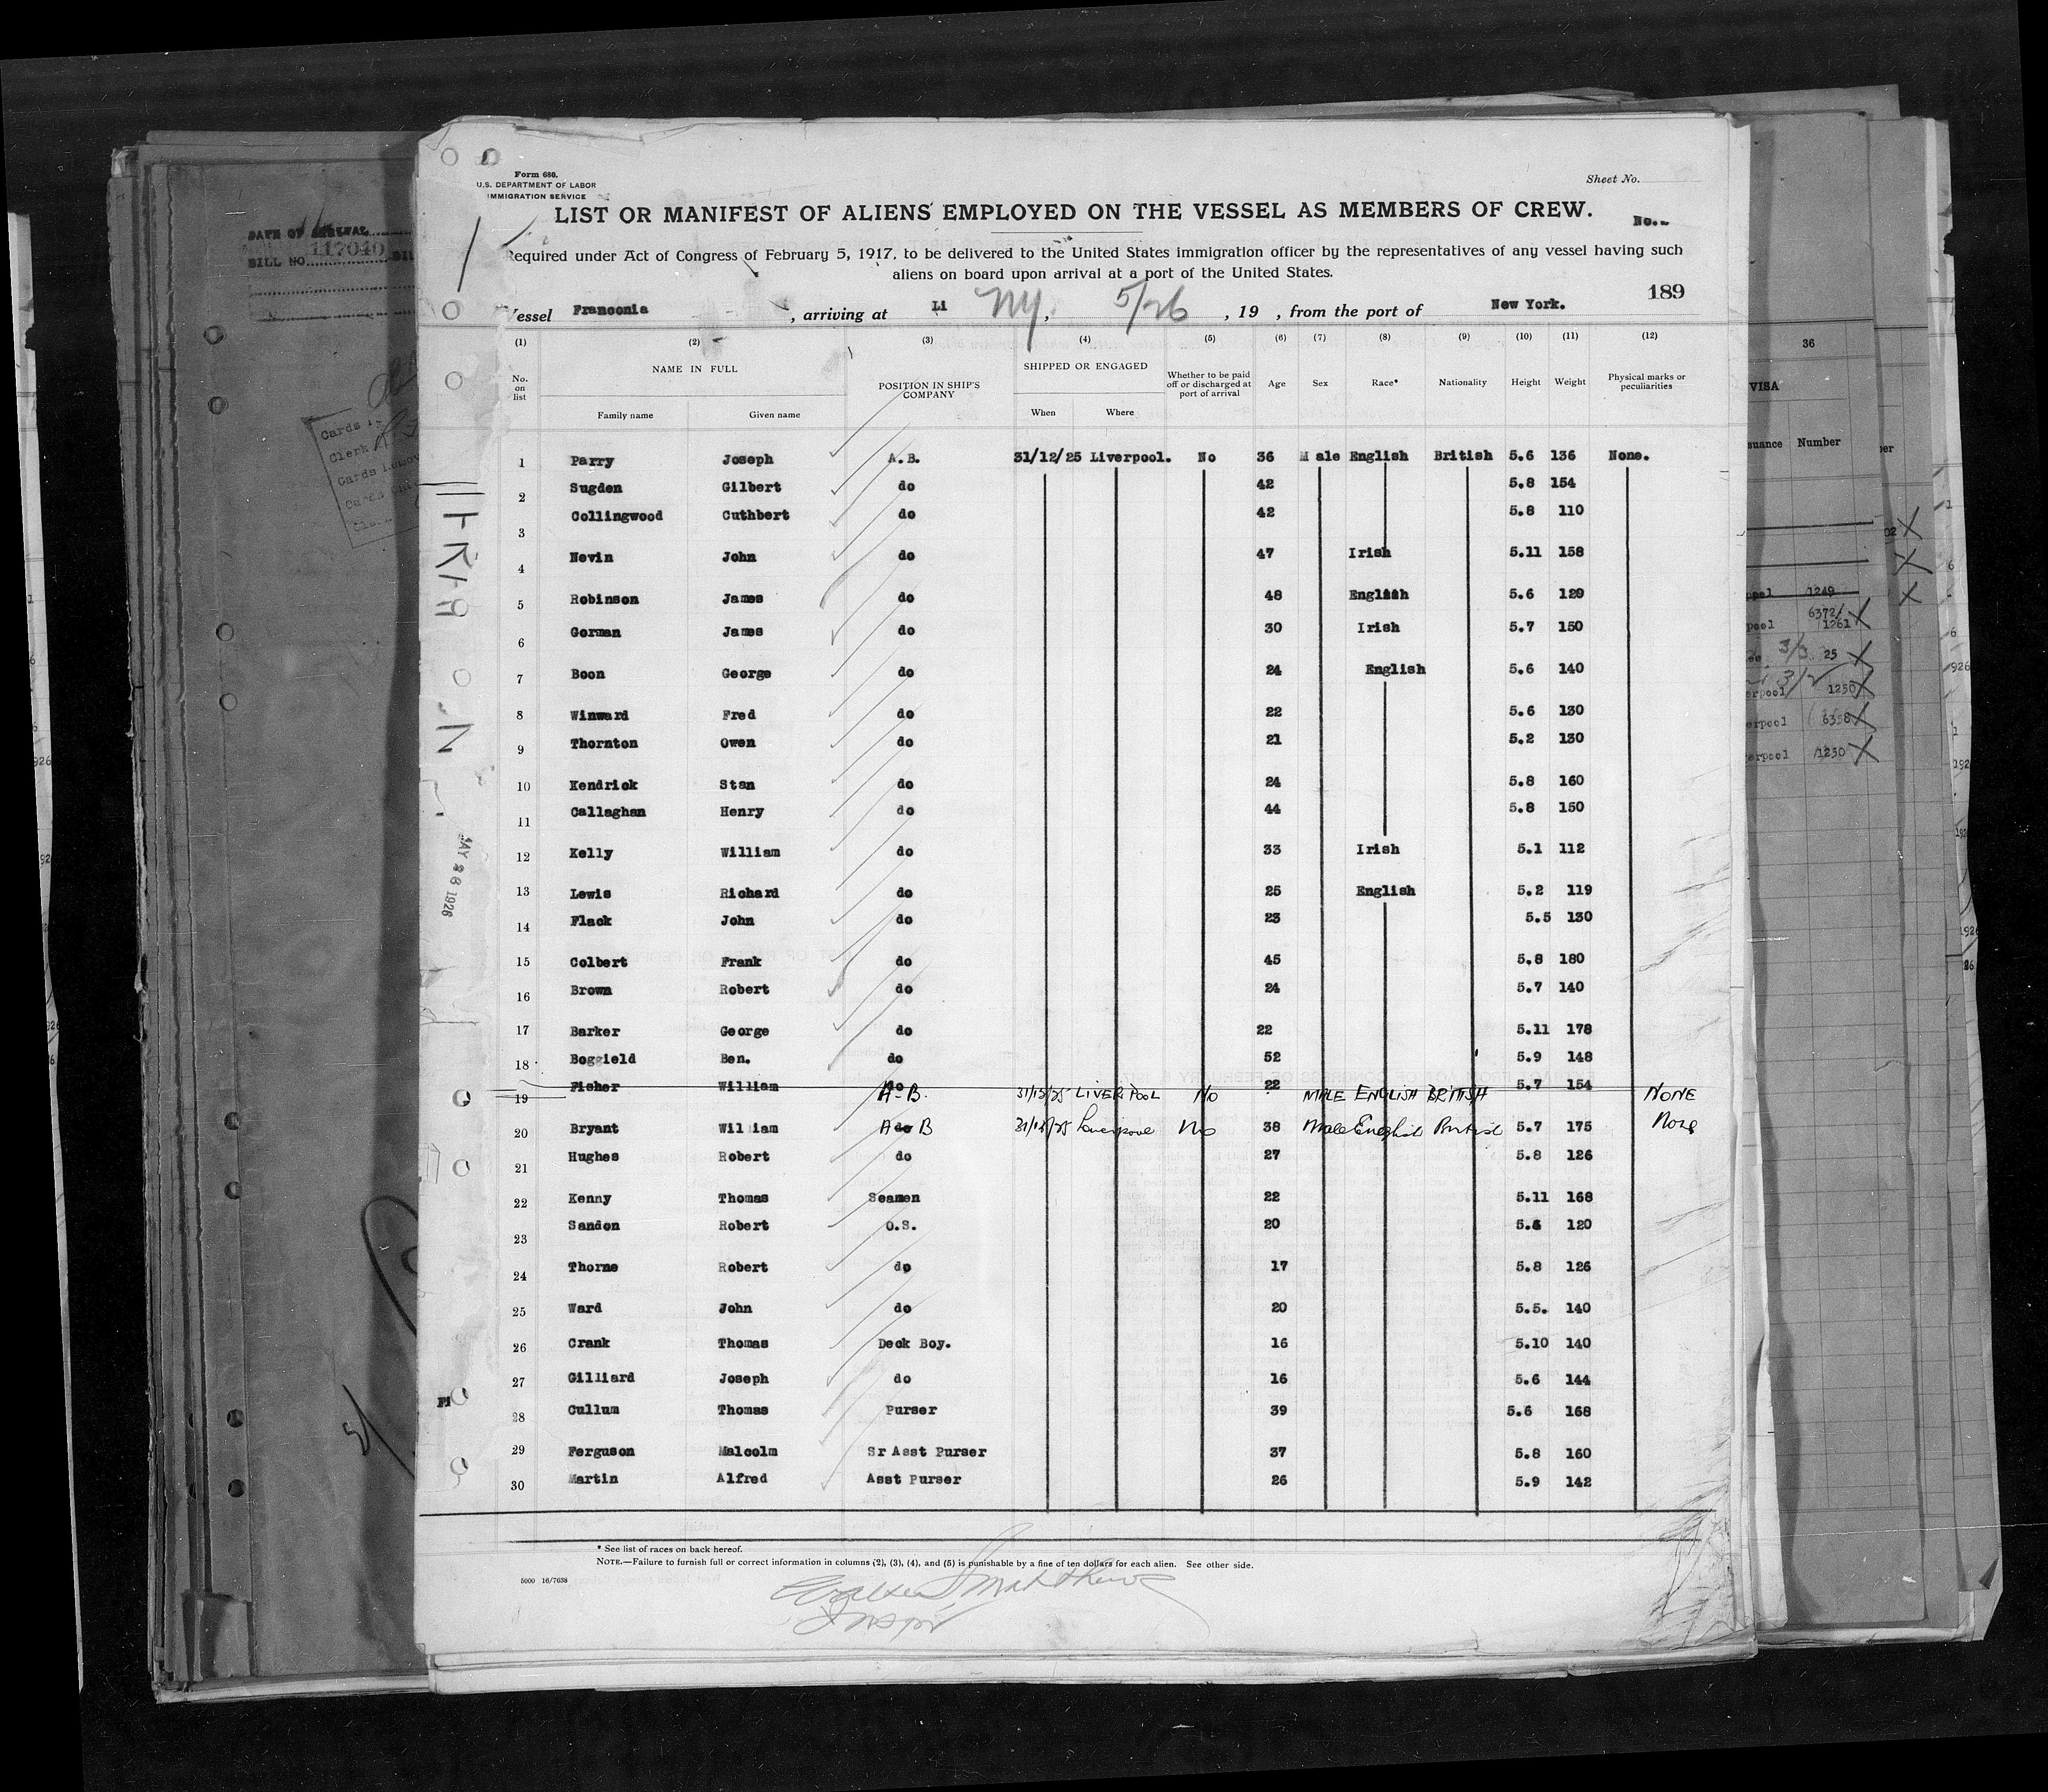 Form 680.
U.S. DEPARTMENT OF LABOR
IMMIGRATION SERVICE
Sheet No.
LIST OR MANIFEST OF ALIENS EMPLOYED ON THE VESSEL AS MEMBERS OF CREW.
No.
Required under Act of Congress of February 5, 1917, to be delivered to the United States immigration officer by the representatives of any vessel having such
aliens on board upon arrival at a port of the United States.
189
Vessel Franconia, arriving at Li NY, 5/26, 19 , from the port of New York.
(1) (2) (3) (4) (5) (6) (7) (8) (9) (10) (11) (12)
No. on list NAME IN FULL Family name Given name POSITION IN SHIP'S COMPANY SHIPPED OR ENGAGED When Where Whether to be paid off or discharged at port of arrival Age Sex Race* Nationality Height Weight Physical marks or peculiarities
1 Parry Joseph A.B. 31/12/25 Liverpool. No 36 Male English British 5.6 136 None.
2 Sugden Gilbert do 42 5.8 154
3 Collingwood Cuthbert do 42 5.8 110
4 Nevin John do 47 Irish 5.11 158
5 Robinson James do 48 English 5.6 129
6 Gorman James do 30 Irish 5.7 150
7 Boon George do 24 English 5.6 140
8 Winward Fred do 22 5.6 130
9 Thornton Owen do 21 5.2 130
10 Kendrick Stan do 24 5.8 160
11 Callaghan Henry do 44 5.8 150
12 Kelly William do 33 Irish 5.1 112
13 Lewis Richard do 25 English 5.2 119
14 Flack John do 23 5.5 130
15 Colbert Frank do 45 5.8 180
16 Brown Robert do 24 5.7 140
17 Barker George do 22 5.11 178
18 Boggield Ben. do 52 5.9 148
19 Fisher William do A-B. 31/12/25 LIVERPOOL No 22 MALE ENGLISH BRITISH 5.7 154 NONE
20 Bryant William A do B 31/12/25 Liverpool No 38 Male English British 5.7 175 None
21 Hughes Robert do 27 5.8 126
22 Kenny Thomas Seamen 22 5.11 168
23 Sandon Robert O.S. 20 5.6 120
24 Thorne Robert do 17 5.8 126
25 Ward John do 20 5.5. 140
26 Crank Thomas Deck Boy. 16 5.10 140
27 Gilliard Joseph do 16 5.6 144
28 Cullum Thomas Purser 39 5.6 168
29 Ferguson Malcolm Sr Asst Purser 37 5.8 160
30 Martin Alfred Asst Purser 26 5.9 142
* See list of races on back hereof.
NOTE.—Failure to furnish full or correct information in columns (2), (3), (4), and (5) is punishable by a fine of ten dollars for each alien. See other side.
5000 16/7638
MAY 26 1926
BILL NO. 117040
Cards
Clerk
36
VISA
Number
1249
6372/
1261
25
1230
6358
1230